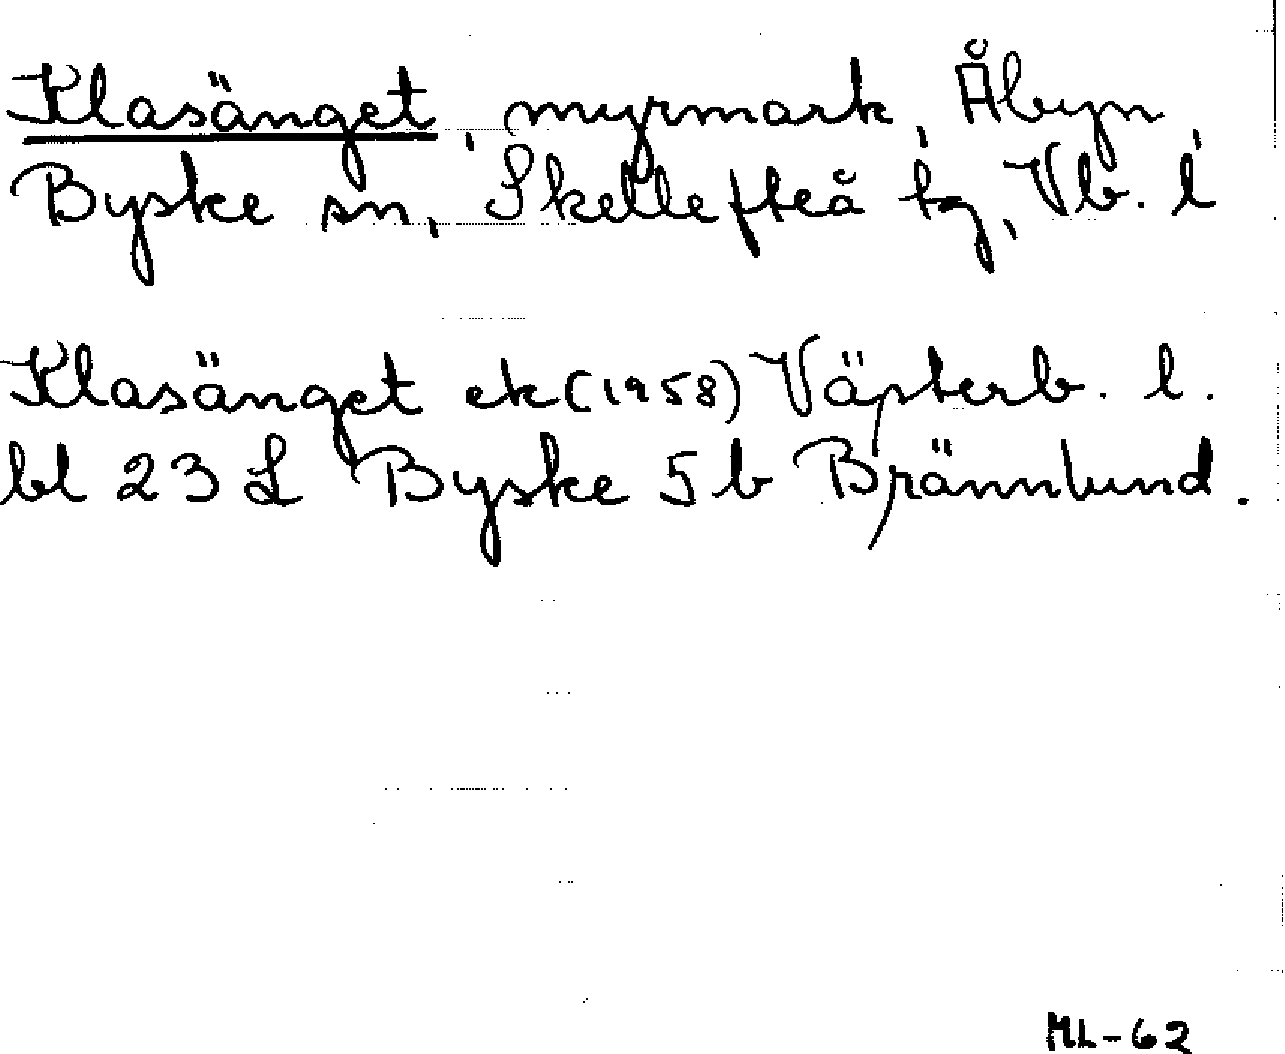 Klasänget, myrmark, Åbyn,
Byske sn, Skellefteå tg, Vb. l
Klasänget ek (1958) Västerb. l.
bl 23 L Byske 5 b Brännlund.
ML-62